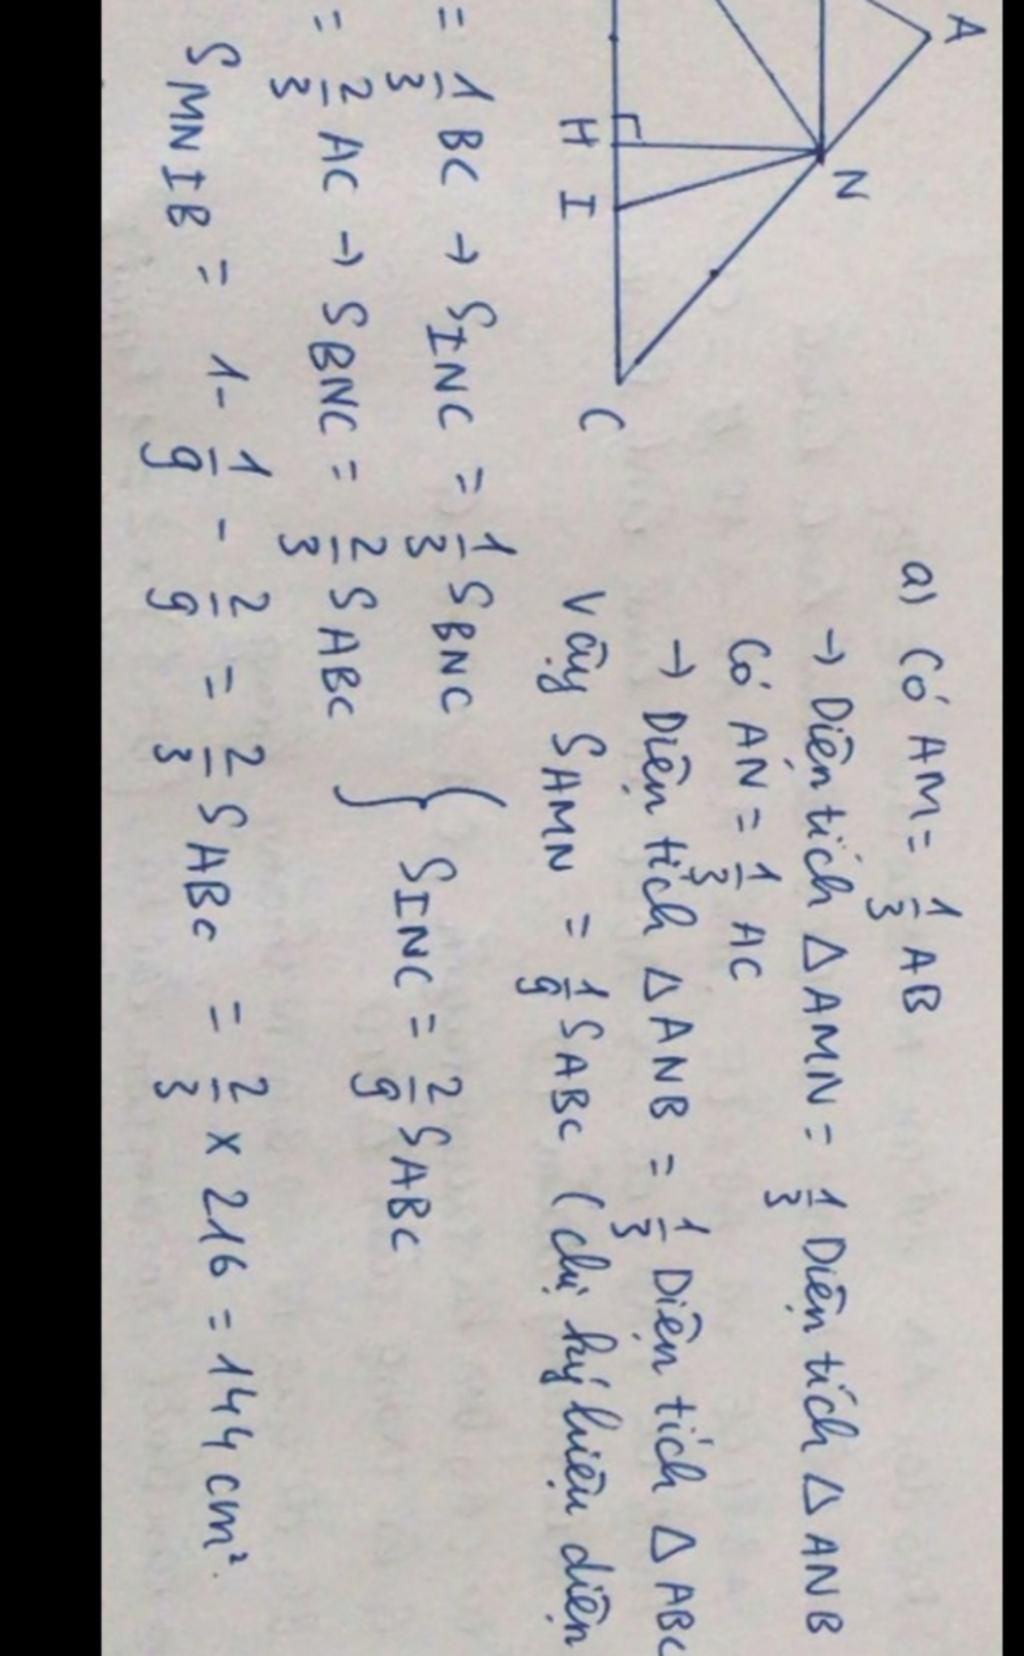 A
N
H
I
C
a) Có AM = 1/3 AB
→ Diện tích △ AMN = 1/3 Diện tích △ ANB
Có AN = 1/3 AC
→ Diện tích △ ANB = 1/3 Diện tích △ ABC
Vậy SAMN = 1/9 SABC (chị ký hiệu diện
= 1/3 BC → SINC = 1/3 SBNC
= 2/3 AC → SBNC = 2/3 SABC } SINC = 2/9 SABC
SMNIB = 1 - 1/9 - 2/9 = 2/3 SABC = 2/3 x 216 = 144 cm²